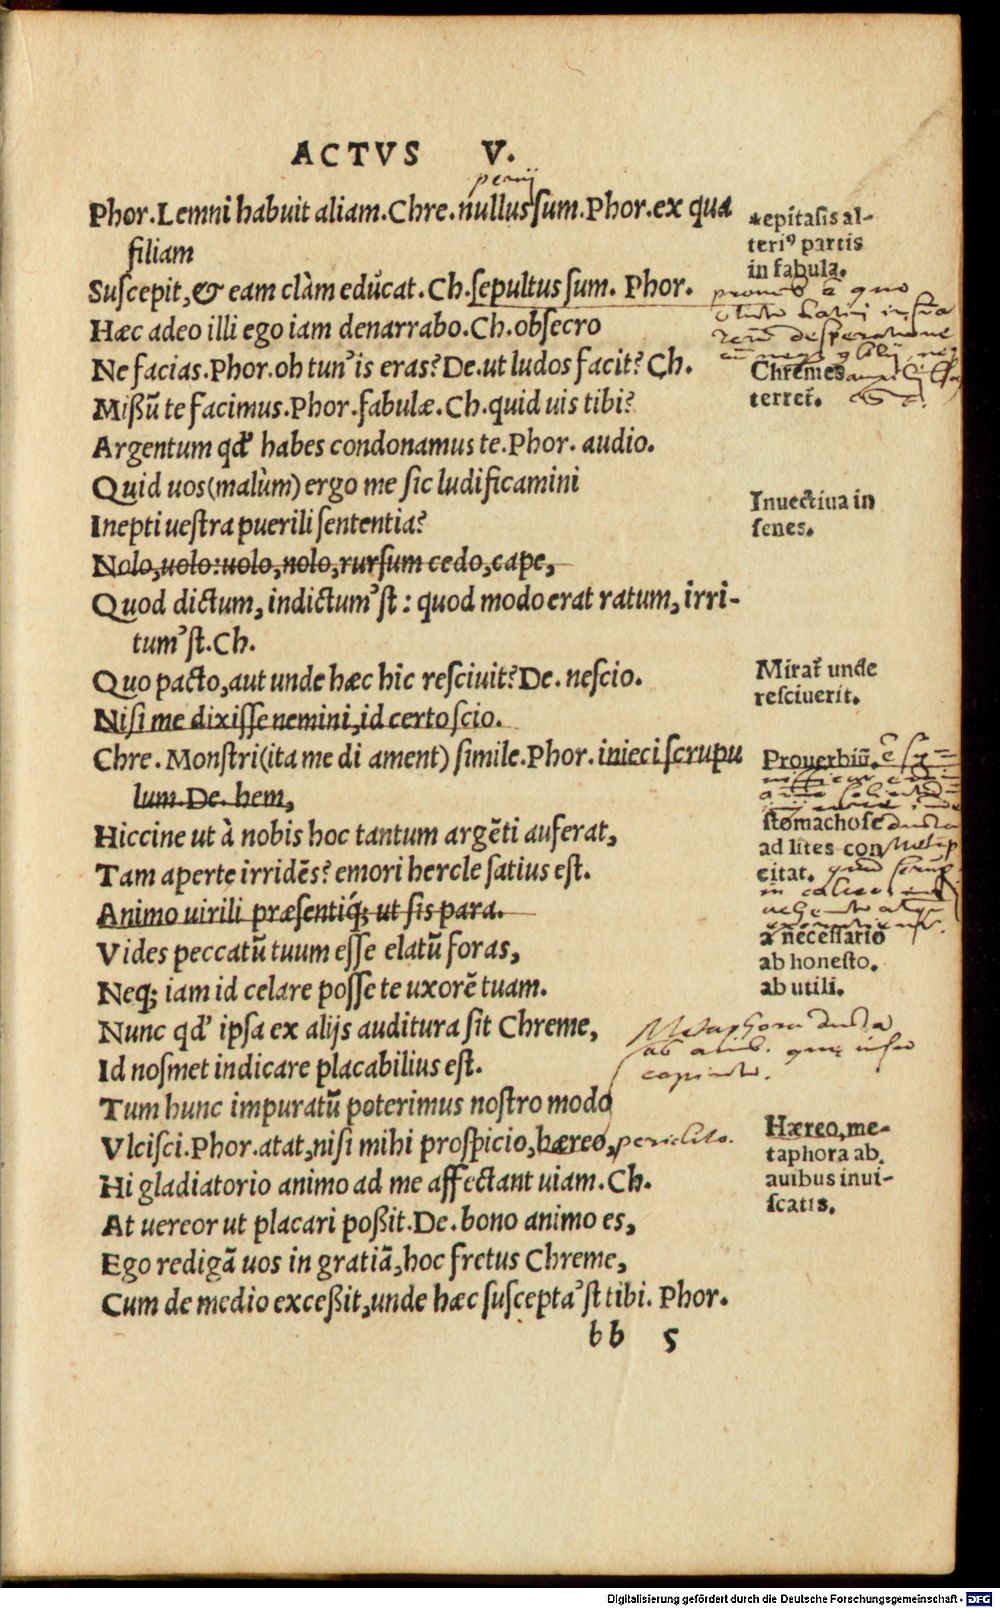 ACTVS V.
perij
Phor. Lemni habuit aliam. Chre. nullus sum. Phor. ex qua
filiam
Suscepit, & eam clàm educat. Ch. sepultus sum. Phor.
Hæc adeo illi ego iam denarrabo. Ch. obsecro
Ne facias. Phor. oh tun' is eras? De. ut ludos facit? Ch.
Mißū te facimus. Phor. fabulæ. Ch. quid uis tibi?
Argentum qd' habes condonamus te. Phor. audio.
Quid uos (malùm) ergo me sic ludificamini
Inepti uestra puerili sententia?
Nolo, uolo: uolo, nolo, rursum cedo, cape,
Quod dictum, indictum'st: quod modo erat ratum, irri-
tum'st. Ch.
Quo pacto, aut unde hæc hic resciuit? De. nescio.
Nisi me dixisse nemini, id certo scio.
Chre. Monstri (ita me di ament) simile. Phor. inieci scrupu
lum. De. hem,
Hiccine ut à nobis hoc tantum argēti auferat,
Tam aperte irridēs? emori hercle satius est.
Animo uirili præsentiq; ut sis para.
Vides peccatū tuum esse elatū foras,
Neq; iam id celare posse te uxorē tuam.
Nunc qd' ipsa ex alijs auditura sit Chreme,
Id nosmet indicare placabilius est.
Tum hunc impuratū poterimus nostro modo
Vlcisci. Phor. atat, nisi mihi prospicio, hæreo, periclito.
Hi gladiatorio animo ad me affectant uiam. Ch.
At uereor ut placari poßit. De. bono animo es,
Ego redigā uos in gratiā, hoc fretus Chreme,
Cum de medio exceßit, unde hæc suscepta'st tibi. Phor.
bb 5
*epitasis al-
teri⁹ partis
in fabula.
a quo
desperatione
Chremes
terret̃.
Inuectiua in
senes.
Mirat̃ unde
resciuerit.
Prouerbiū.
stomachose ducta
ad lites con
citat.
a necessario
ab honesto.
ab utili.
Metaphora ducta
ab auib.
capiuntur.
Hæreo, me-
taphora ab
auibus inui-
scatis.
Digitalisierung gefördert durch die Deutsche Forschungsgemeinschaft - DFG